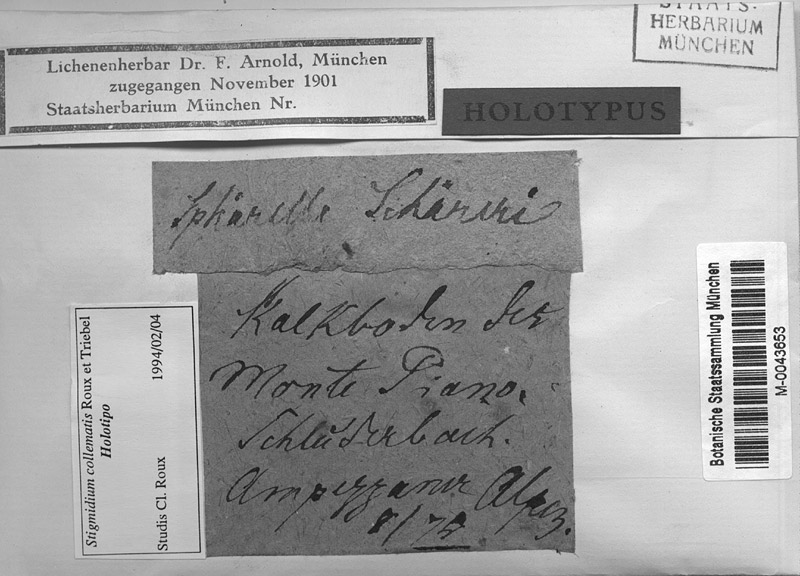 STAATS-
HERBARIUM
MÜNCHEN
Lichenenherbar Dr. F. Arnold, München
zugegangen November 1901
Staatsherbarium München Nr.
HOLOTYPUS
Sphärella Schäreri
Kalkboden des
Monte Piano.
Schluderbach.
Ampezzaner Alpen.
8/78
Stigmidium collematis Roux et Triebel
Holotipo
1994/02/04
Studis Cl. Roux
Botanische Staatssammlung München
M-0043653